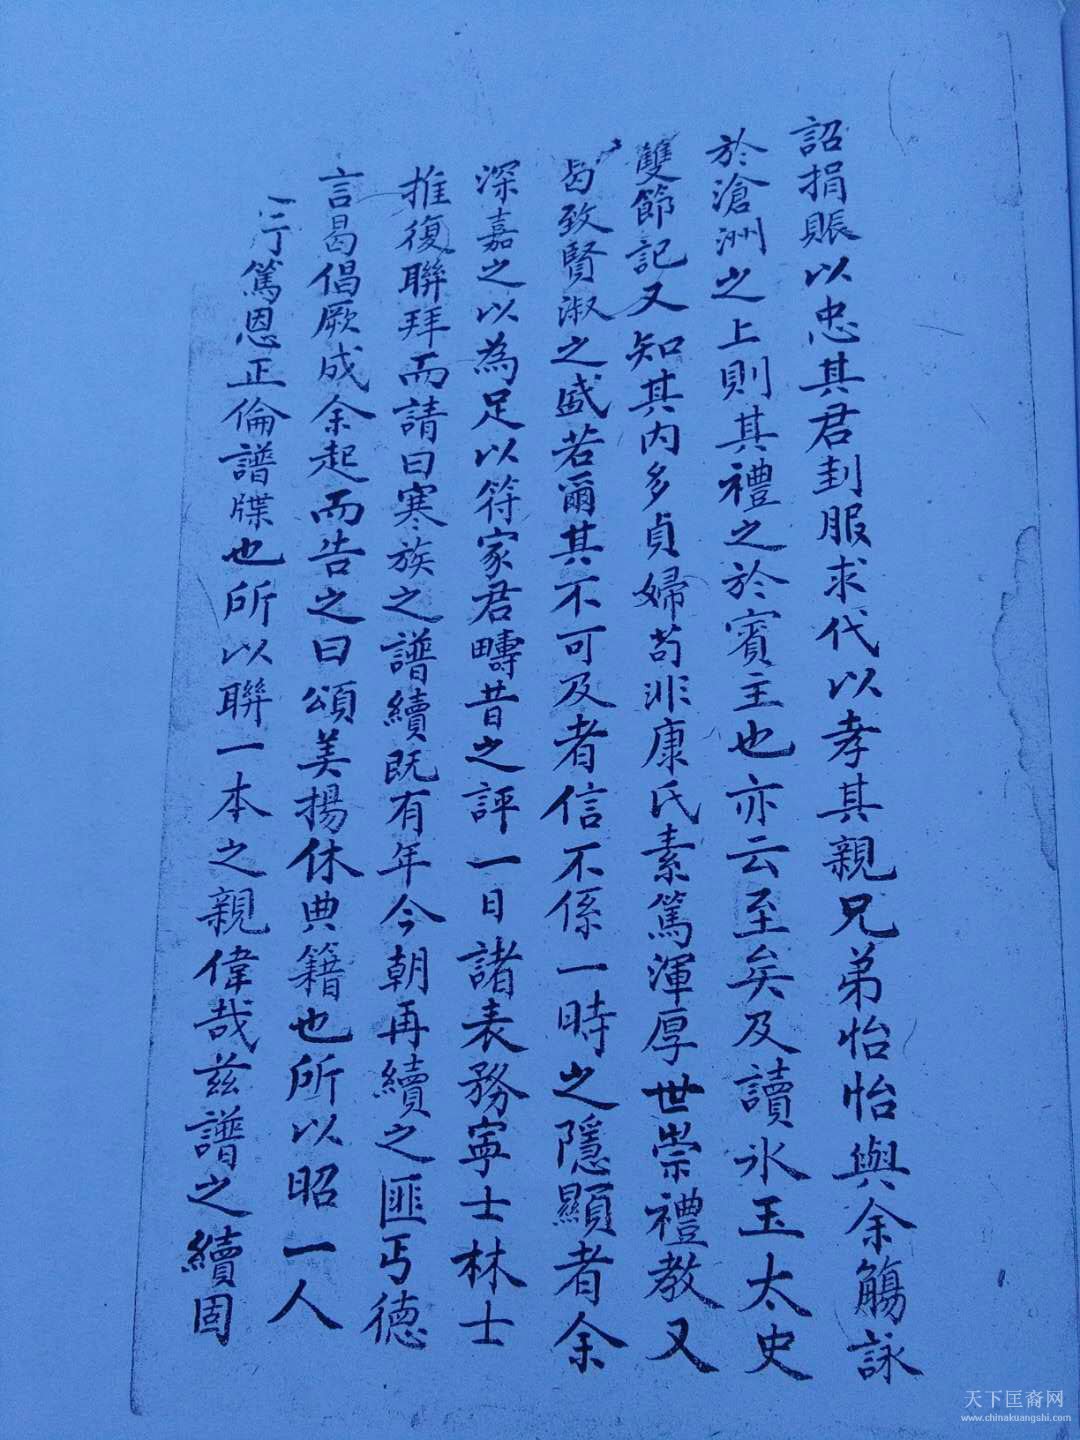 詔捐賬以忠其君封服求代以孝其親兄弟怡怡與余觴詠
於滄洲之上則其禮之於賓主也亦云至矣及讀氷玉太史
雙節記又知其内多貞婦苟非康氏素篤渾厚世崇禮教又
曷致賢淑之盛若爾其不可及者信不係一時之隱顯者余
深嘉之以為足以符家君疇昔之評一日諸表務寧士林士
推復聯拜而請曰寒族之譜續既有年今朝再續之匪丐德
言曷倡厥成余起而告之曰頌美揚休典籍也所以昭一人
篤恩正倫譜牒也所以聯一本之親偉哉兹譜之續固
天下匡裔网
www.chinakuangshi.com